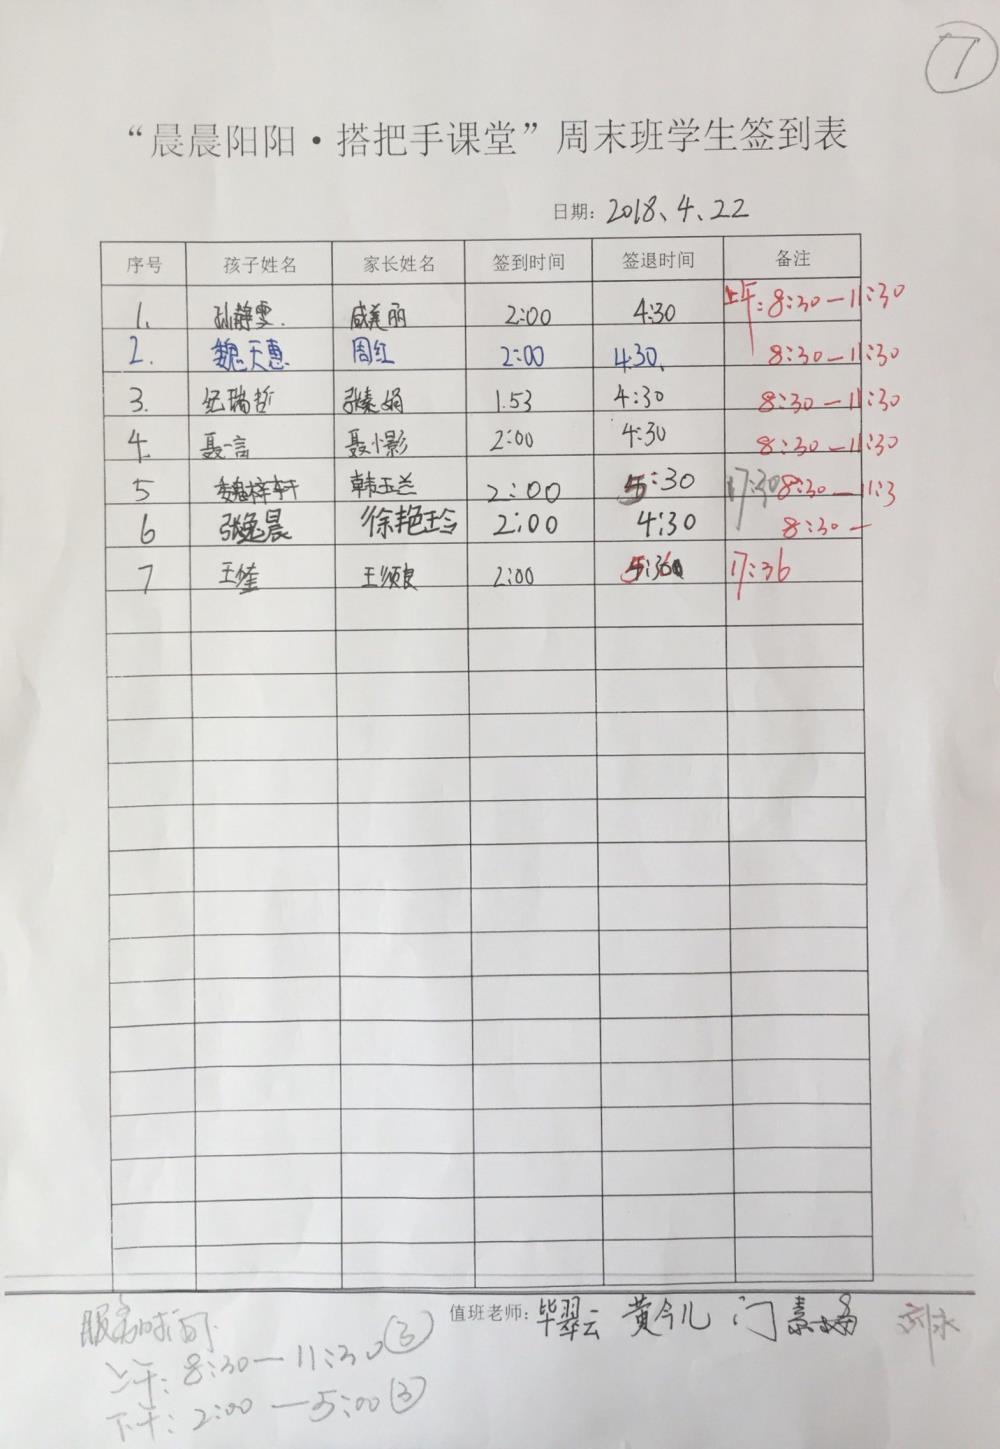 7
“晨晨阳阳·搭把手课堂”周末班学生签到表
日期：2018、4、22
序号 孩子姓名 家长姓名 签到时间 签退时间 备注
1. 孙静雯. 咸美丽 2:00 4:30 上午：8:30—11:30
2. 魏天惠 周红 2:00 4:30、 8:30—11:30
3. 纪瑞哲 张素娟 1:53 4:30 8:30—11:30
4. 聂一言 聂小影 2:00 4:30 8:30—11:30
5 魏梓轩 韩玉兰 2:00 5:30 17:30 8:30—11:3
6 张逸晨 徐艳玲 2:00 4:30 8:30—
7 王奎 王颂良 2:00 17:36
值班老师：毕翠云 黄今儿 门素娟 刘永
服务时间
上午：8:30—11:30 ③
下午：2:00—5:00 ③